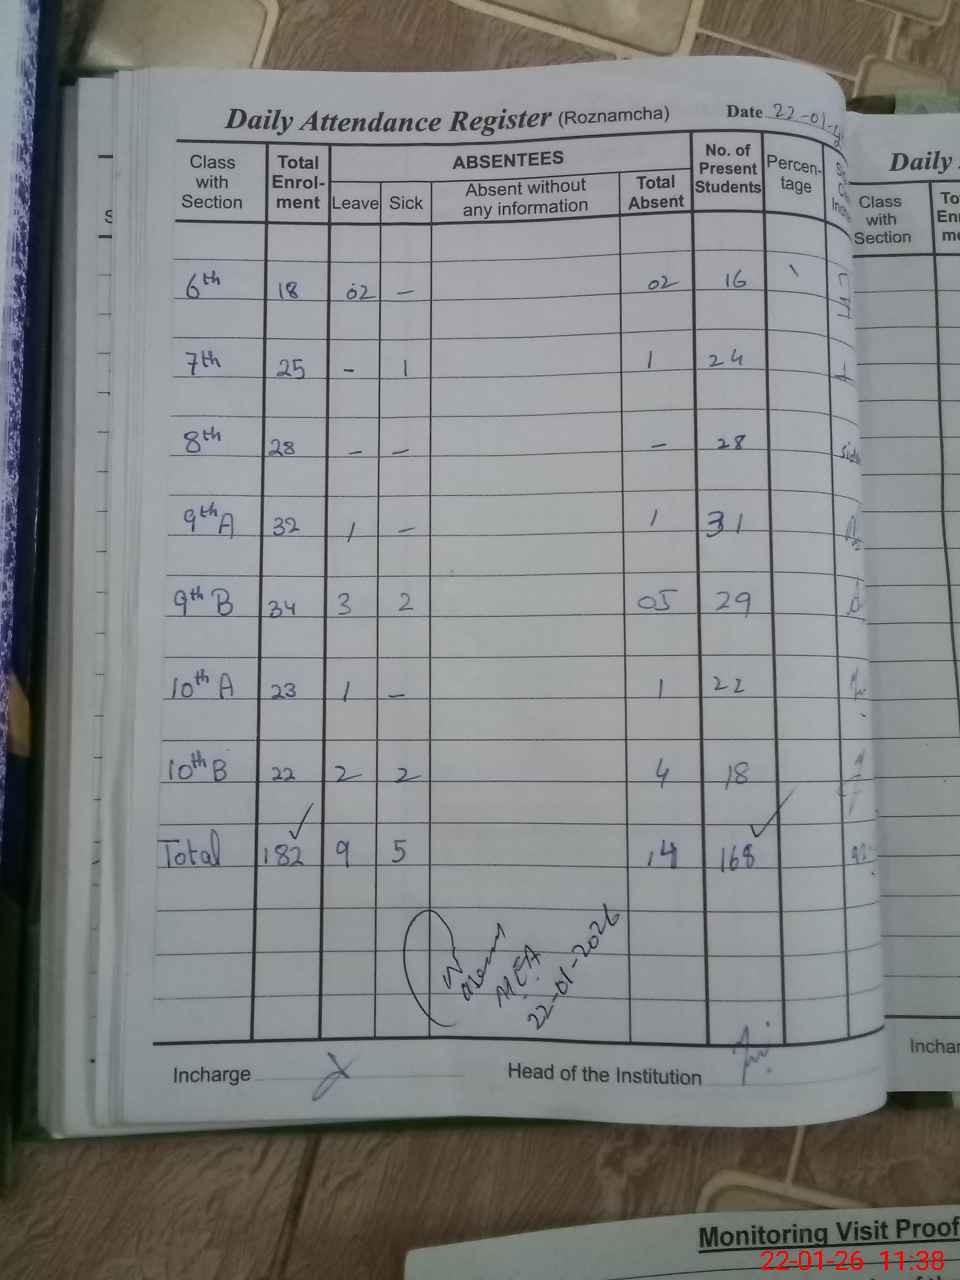 Daily Attendance Register (Roznamcha) Date 22-01-
Class with Section Total Enrol-ment ABSENTEES Leave Sick Absent without any information Total Absent No. of Present Students Percen-tage
6th 18 02 – 02 16
7th 25 - 1 1 24
8th 28 – – – 28
9th A 32 1 – 1 31
9th B 34 3 2 05 29
10th A 23 1 – 1 22
10th B 22 2 2 4 18
Total 182 9 5 14 168
MEA
22-01-2026
Incharge
Head of the Institution
Daily
Class with Section
Inchar
Monitoring Visit Proof
22-01-26 11:38